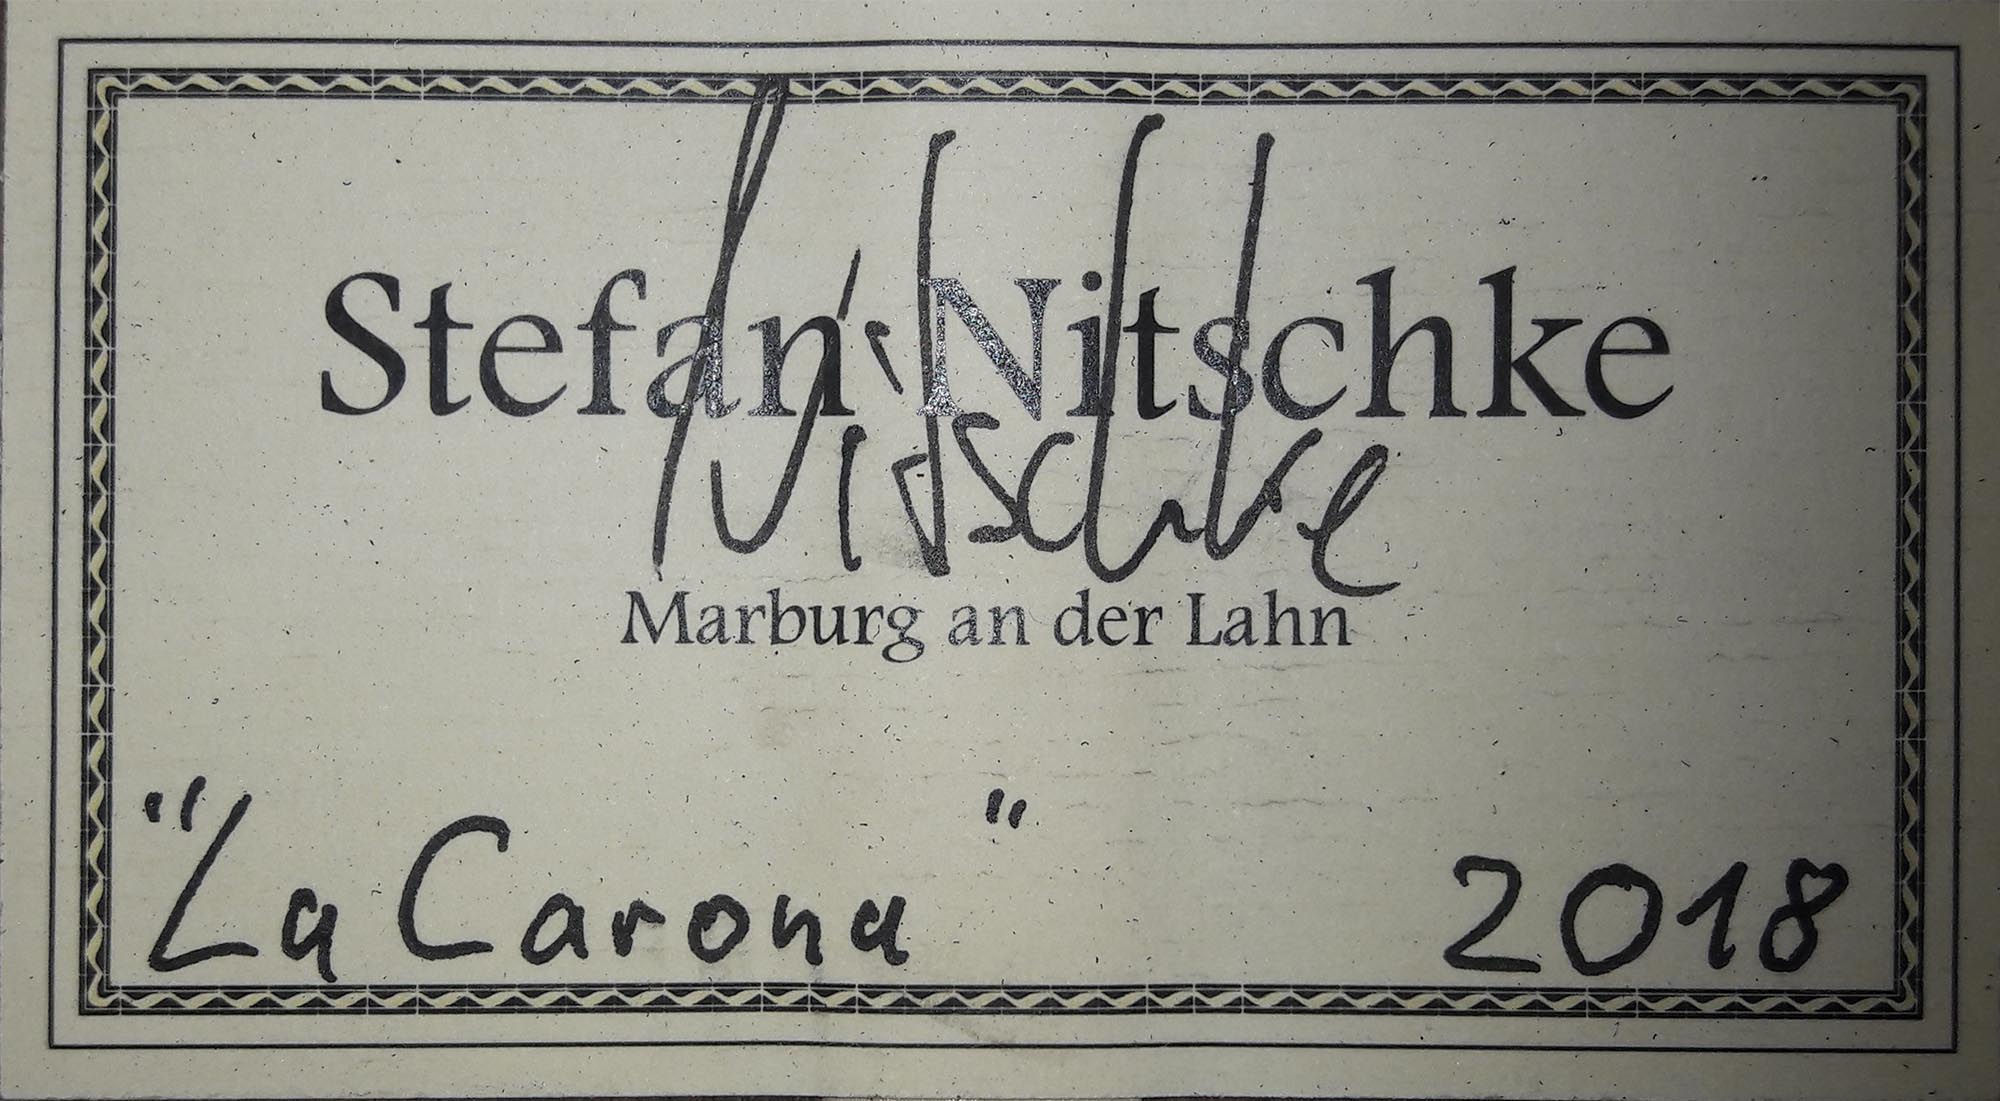 Stefan Nitschke
Nitschke
Marburg an der Lahn
"La Carona" 2018